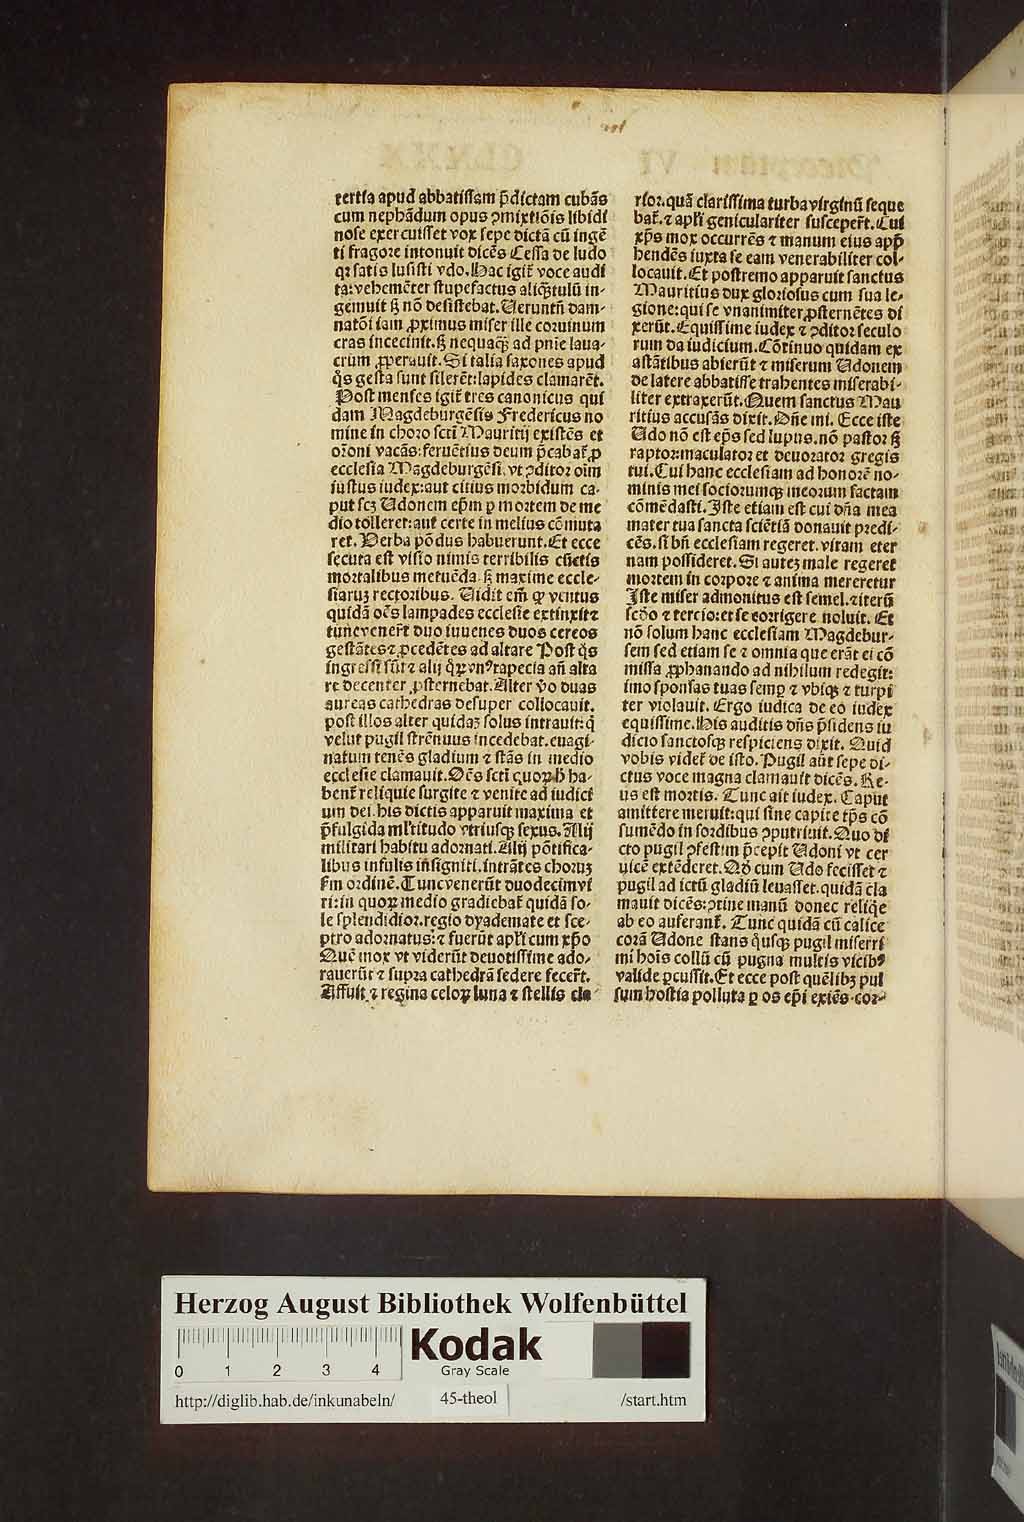 tertia apud abbatissam p̄dictam cubās
cum nephādum opus ꝯmixtiōis libidi
nose exercuisset vox sepe dictā cū ingē
ti fragore intonuit dicēs Cessa de ludo
qꝛ satis lusisti vdo. Hac igit̄ voce audi
ta: vehemēter stupefactus aliqͣtulū in-
gemuit sꝫ nō desistebat. Veruntn̄ dam-
natōi iam ꝓximus miser ille coruinum
cras incecinit. sꝫ nequaqͣꝫ ad pn̄ie laua-
crum ꝓperauit. Si talia saxones apud
qͦs gesta sunt silerēt: lapides clamarēt.
Post menses igit̄ tres canonicus qui
dam Magdeburgēsis Fredericus no
mine in choro scti Mauritij existēs et
oꝛoni vacās: feruētius deum p̄cabat̄ ꝓ
ecclesia Magdeburgēsi. vt ꝯditor oīm
iustus iudex: aut citius morbidum ca-
put scꝫ Udonem ep̄m ꝑ mortem de me
dio tolleret: aut certe in melius cōmuta
ret. Verba pōdus habuerunt. Et ecce
secuta est visio nimis terribilis cūctis
mortalibus metuēda. sꝫ maxime eccle-
siaruꝫ rectoribus. Vidit em̄ qꝫ ventus
quidā oēs lampades ecclesie extinxit ⁊
tunc vener̄t duo iuuenes duos cereos
gestātes ⁊ ꝓcedētes ad altare Post qͦs
ingressi sūt ⁊ alij qͦꝝ vnꝰ tapecia añ alta
re decenter ꝓsternebat. Alter v̄o duas
aureas cathedras desuper collocauit.
post illos alter quidaꝫ solus intrauit: q̄
velut pugil strēnuus incedebat. euagi
natum tenēs gladium ⁊ stās in medio
ecclesie clamauit. Oēs scti quoꝝ hͨ ha-
bent̄ reliquie surgite ⁊ venite ad iudici
um dei. his dictis apparuit maxima et
p̄fulgida ml̄titudo vtriusqꝫ sexus. Alij
militari habitu adornati. Alij pōtifica-
libus infulis insigniti. intrātes choruꝫ
fm ordinē. Tunc venerūt duodecim vi
ri: in quoꝝ medio gradiebat̄ quidā so-
le splendidior. regio dyademate et sce-
ptro adornatus: ⁊ fuerūt apl̄i cum xp̄o
Quē mox vt viderūt deuotissime ado-
rauerūt ⁊ supra cathedrā sedere fecer̄t.
Affuit ⁊ regina celoꝝ luna ⁊ stellis cla-
rior. quā clarissima turba virginū seque
bat̄. ⁊ apl̄i genicuIariter susceper̄t. Cui
xp̄s mox occurrēs ⁊ manum eius app̄
hendēs iuxta se eam venerabiliter col-
locauit. Et postremo apparuit sanctus
Mauritius dux gloriosus cum sua le-
gione: qui se vnanimiter ꝓsternētes di
xerūt. Equissime iudex ⁊ ꝯditor seculo
rum da iudicium. Cōtinuo quidam ex
astātibus abierūt ⁊ miserum Udonem
de latere abbatisse trahentes miserabi-
liter extraxerūt. Quem sanctus Mau
ritius accusās dixit. Dn̄e mi. Ecce iste
Udo nō est ep̄s sed lupus. nō pastor sꝫ
raptor: maculator et deuorator gregis
tui. Cui hanc ecclesiam ad honorē no-
minis mei sociorumqꝫ meorum factam
cōmēdasti. Iste etiam est cui dn̄a mea
mater tua sancta sciētiā donauit predi-
cēs. si bn̄ ecclesiam regeret. vitam eter
nam possideret. Si auteꝫ male regeret
mortem in corpore ⁊ anima mereretur
Iste miser admonitus est semel. ⁊ iterū
scd̄o ⁊ tercio: et se corrigere noluit. Et
nō solum hanc ecclesiam Magdebur-
sem sed etiam se ⁊ omnia que erāt ei cō
missa ꝓphanando ad nihilum redegit:
imo sponsas tuas semp̱ ⁊ vbiqꝫ ⁊ turpi
ter violauit. Ergo iudica de eo iudex
equissime. His auditis dn̄s p̄sidens iu
dicio sanctosqꝫ respiciens dixit. Quid
vobis videt̄ de isto. Pugil aūt sepe di-
ctus voce magna clamauit dicēs. Re-
us est mortis. Tunc ait iudex. Caput
amittere meruit: qui sine capite tp̄s cō
sumēdo in sordibus ꝯputriuit. Quo di
cto pugil ꝯfestim p̄cepit Udoni vt cer
uicē extēderet. Qd̄ cum Udo fecisset ⁊
pugil ad ictū gladiū leuasset. quidā cla
mauit dicēs: ꝯtine manū donec reliqͥe
ab eo auferant̄. Tunc quidā cū calice
corā Udone stans qͥusqꝫ pugil miserri
mi hoīs collū cū pugna multis vicibꝰ
valide ꝑcussit. Et ecce post quēlibꝫ pul
sum hostia polluta ꝑ os ep̄i exiēs. cor-
Herzog August Bibliothek Wolfenbüttel
Kodak
Gray Scale
0 1 2 3 4
http://diglib.hab.de/inkunabeln/ 45-theol /start.htm